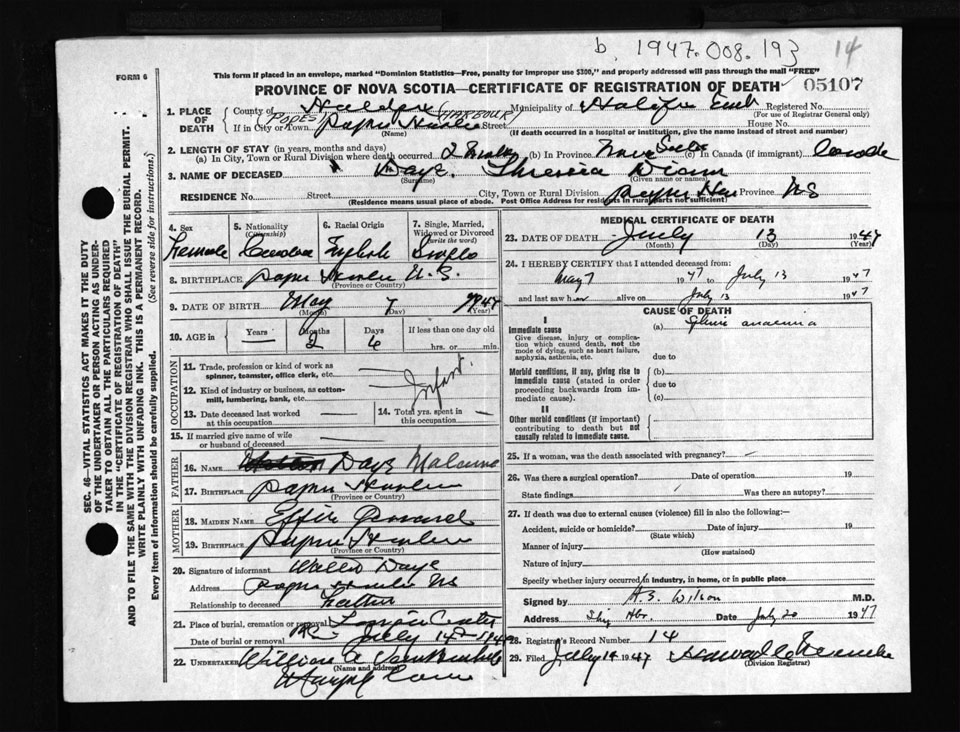 b. 1947.008.193 14
FORM 6
This form if placed in an envelope, marked "Dominion Statistics—Free, penalty for improper use $300," and properly addressed will pass through the mail "FREE"
PROVINCE OF NOVA SCOTIA—CERTIFICATE OF REGISTRATION OF DEATH
05107
1. PLACE OF DEATH
County of Halifax Municipality of Halifax Registered No.
(For use of Registrar General only)
(POPES HARBOUR)
If in City or Town Street House No.
(Name) (If death occurred in a hospital or institution, give the name instead of street and number)
2. LENGTH OF STAY (in years, months and days)
(a) In City, Town or Rural Division where death occurred 2 (b) In Province Nova Scotia (c) In Canada (if immigrant)
3. NAME OF DECEASED Daye Theresa Diann
(Surname) (Given name or names)
RESIDENCE No. Street City, Town or Rural Division Province NS
(Residence means usual place of abode. Post Office Address for residents in rural parts not sufficient)
4. Sex
Female
5. Nationality
(Citizenship)
6. Racial Origin
English
7. Single, Married, Widowed or Divorced
(write the word)
Single
8. BIRTHPLACE N.S.
(Province or Country)
9. DATE OF BIRTH May 7 1947
(Month) (Day) (Year)
10. AGE in Years — Months 2 Days 6 If less than one day old
hrs. or min.
OCCUPATION
11. Trade, profession or kind of work as spinner, teamster, office clerk, etc. —
12. Kind of industry or business, as cotton-mill, lumbering, bank, etc. —
Infant.
13. Date deceased last worked at this occupation —
14. Total yrs. spent in this occupation —
15. If married give name of wife or husband of deceased —
FATHER
16. NAME Daye
17. BIRTHPLACE
(Province or Country)
MOTHER
18. MAIDEN NAME Effie
19. BIRTHPLACE
(Province or Country)
20. Signature of informant Daye
Address NS
Relationship to deceased Father
21. Place of burial, cremation or removal
Date of burial or removal July 14
22. UNDERTAKER William
(Name and address)
MEDICAL CERTIFICATE OF DEATH
23. DATE OF DEATH July 13 1947
(Month) (Day) (Year)
24. I HEREBY CERTIFY that I attended deceased from:
May 7 1947 to July 13 1947
and last saw her alive on July 13 1947
CAUSE OF DEATH
I
Immediate cause
Give disease, injury or complication which caused death, not the mode of dying, such as heart failure, asphyxia, asthenia, etc.
(a) anaemia
due to
Morbid conditions, if any, giving rise to immediate cause (stated in order proceeding backwards from immediate cause).
(b)
due to
(c)
II
Other morbid conditions (if important) contributing to death but not causally related to immediate cause.
25. If a woman, was the death associated with pregnancy? —
26. Was there a surgical operation? Date of operation 19
State findings Was there an autopsy?
27. If death was due to external causes (violence) fill in also the following:—
Accident, suicide or homicide? Date of injury 19
(State which)
Manner of injury
(How sustained)
Nature of injury
Specify whether injury occurred in industry, in home, or in public place
Signed by A.S. Wilson M.D.
Address Date July 20 1947
28. Registrar's Record Number 14
29. Filed July 14 1947
(Division Registrar)
SEC. 46—VITAL STATISTICS ACT MAKES IT THE DUTY
OF THE UNDERTAKER OR PERSON ACTING AS UNDER-
TAKER TO OBTAIN ALL THE PARTICULARS REQUIRED
IN THE "CERTIFICATE OF REGISTRATION OF DEATH"
AND TO FILE THE SAME WITH THE DIVISION REGISTRAR WHO SHALL ISSUE THE BURIAL PERMIT.
WRITE PLAINLY WITH UNFADING INK. THIS IS A PERMANENT RECORD.
Every item of information should be carefully supplied. (See reverse side for instructions.)